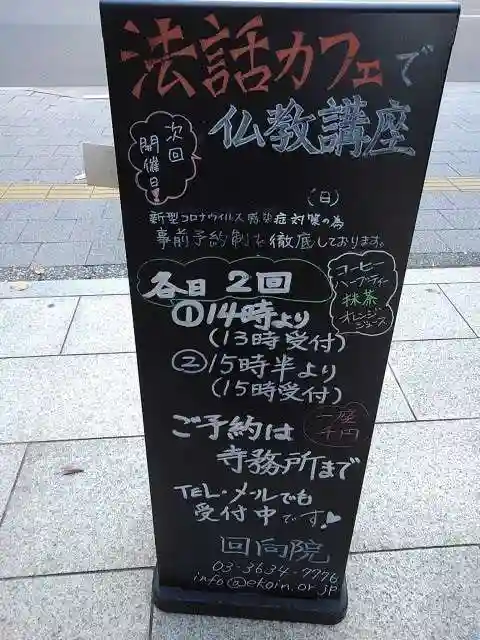 法話カフェで
仏教講座
次回
開催日!
(日)
新型コロナウイルス感染症対策の為
事前予約制を徹底しております。
各日 2回
①14時より
(13時受付)
②15時半より
(15時受付)
コーヒー
ハーブティー
抹茶
オレンジ
ジュース
一座
千円
ご予約は
寺務所まで
TEL・メールでも
受付中です
回向院
03-3634-7776
info@ekoin.or.jp